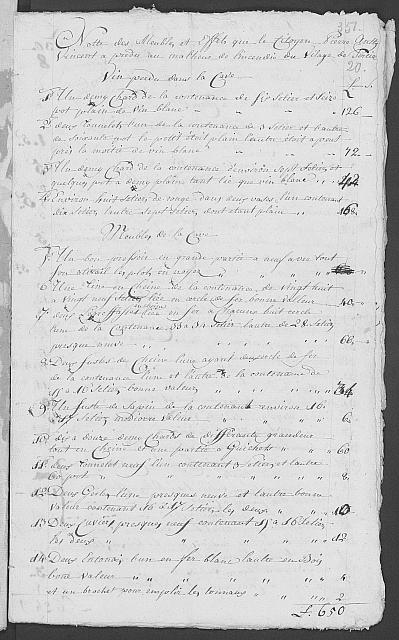 357.
Notte des Meubles et Effets que le Citoyen Pierre
Vincent a perdu au malheur de l'incendie du Vilage de
20.
Vin perdu dans la Cave
1 Un demy Chard de la contenance de six Setier et
pot plain de vin blanc 126
2 deux tonnelets l'un de la contenance de 3 Setier et l'autre
de soixante pot le petit étoit plain l'autre étoit a peu
près la moitié de vin blanc 72
3 Un demy Chard de la contenance d'environ sept Setier, et
quelques pot a demy plain tant lie que vin blanc 42
4 Environ huit Setier de rouge dans deux vases l'un contenant
dix Setier l'autre sept Setier, dont étant plain 168
Meubles de la Cave
5 Un bon pressoir en grande partie a neuf avec tout
son les plots en noyer
6 Une en Cheine de la contenance de vingt huit
a vingt neuf Setier liée en cercle de fer bonne valeur 40
7 deux liée en fer a Chacune huit cercle
l'une de la Contenance 33 a 34 Setier l'autre de 28 Setier
presque neuve 60
8 Deux fustes de Cheine l'une ayant des cercle de fer
de la contenance l'une et l'autre de la contenance de
15 a 16 Setier bonne valeur 34
9 Un fuste de Sapin de la contenant environ 16
Setier mediocre valeur 6
10 dix a douze demy Chards de differente grandeur
tout en Cheine et une partie a Guichets 60
11 deux Tonnelet neuf l'un contenant 3 Setier et l'autre
60 pot 8
12 Deux Gerles l'une presques neuve et l'autre bonne
valeur contenant 16 a 17 Setier, les deux 10
13 Deux Cuviers presques neuf contenant 15 a 16 Setier
les deux 12
14 Deux Entonoir l'un en fer blanc l'autre en Bois
bone valeur 4
et un brochet pour emplir les tonnaux 2
£ 650